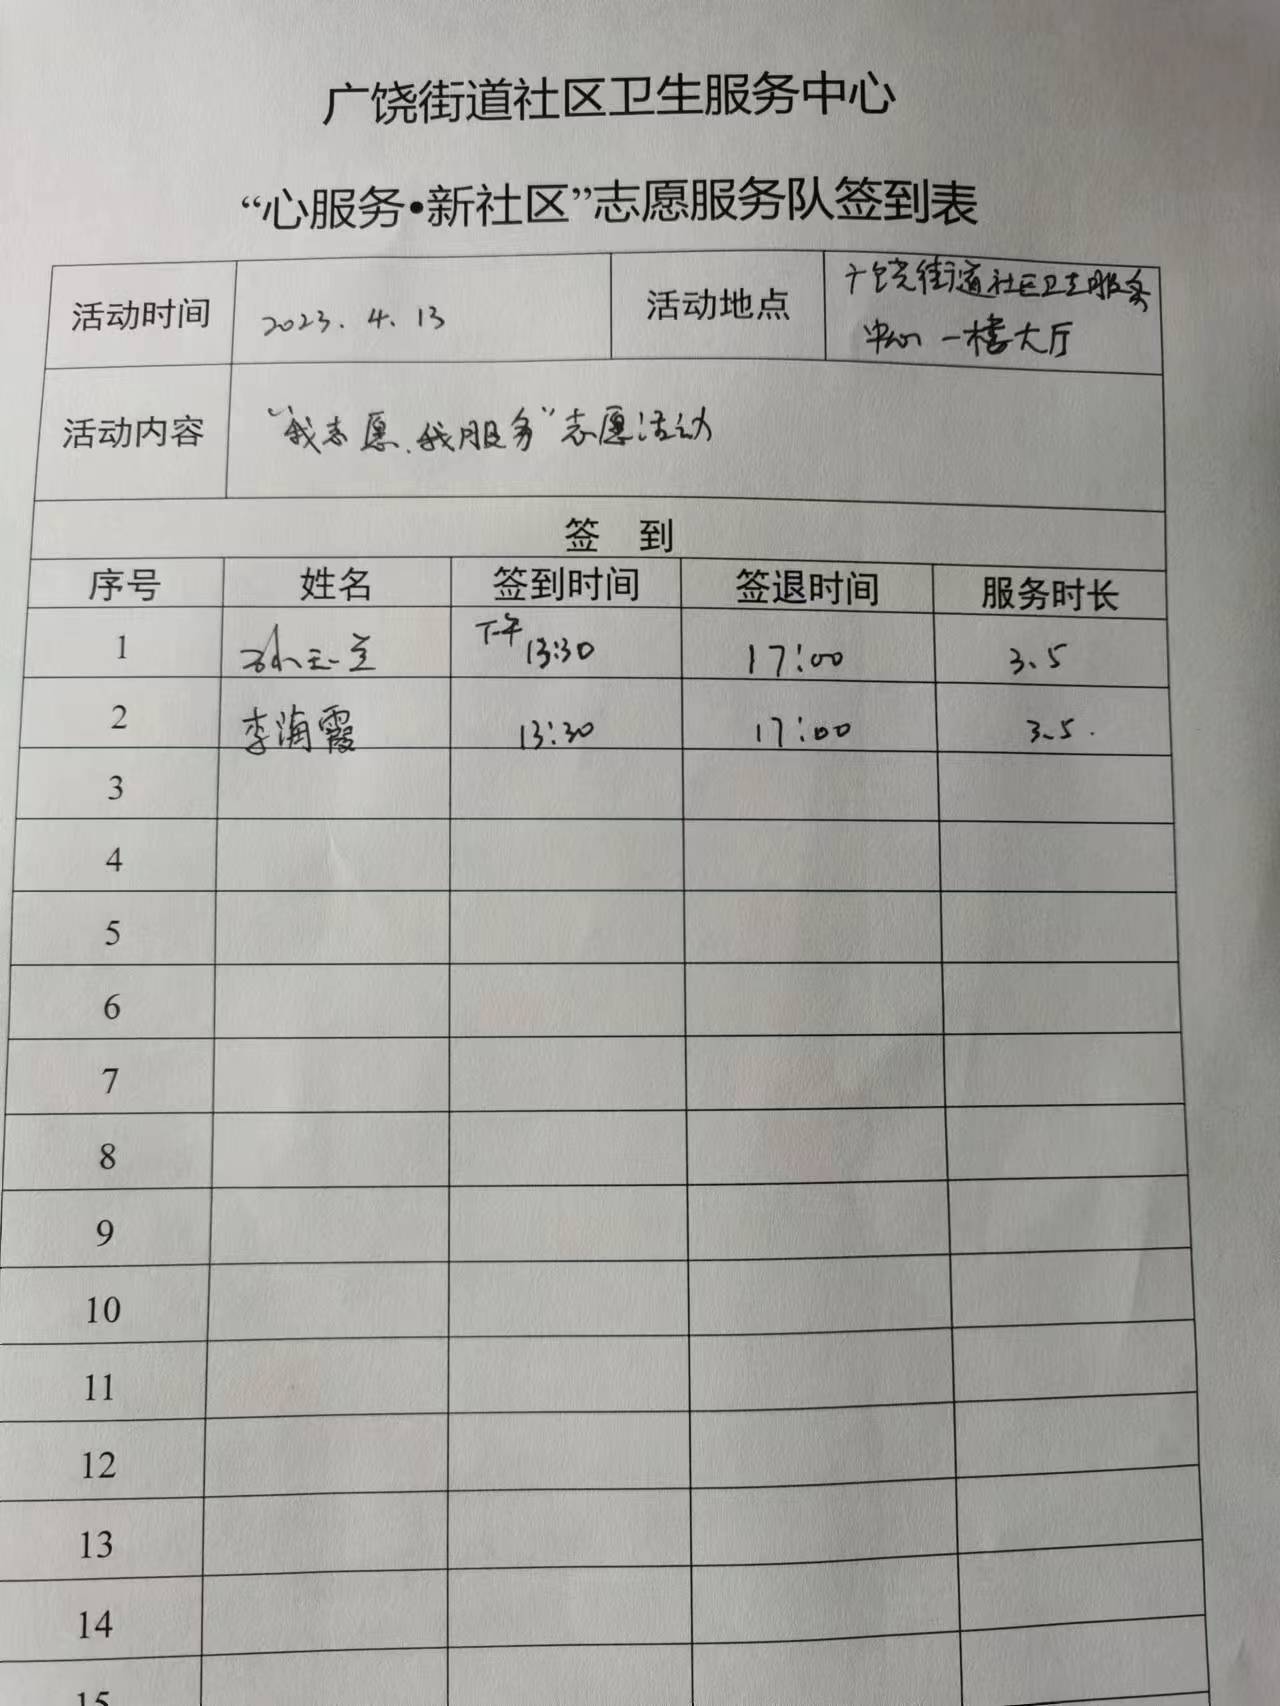 广饶街道社区卫生服务中心
“心服务•新社区”志愿服务队签到表
活动时间 2023.4.13 活动地点 广饶街道社区卫生服务
中心一楼大厅
活动内容 “我志愿、我服务”志愿活动
签 到
序号 姓名 签到时间 签退时间 服务时长
1 下午13:30 17:00 3.5
2 李海霞 13:30 17:00 3.5.
3
4
5
6
7
8
9
10
11
12
13
14
15